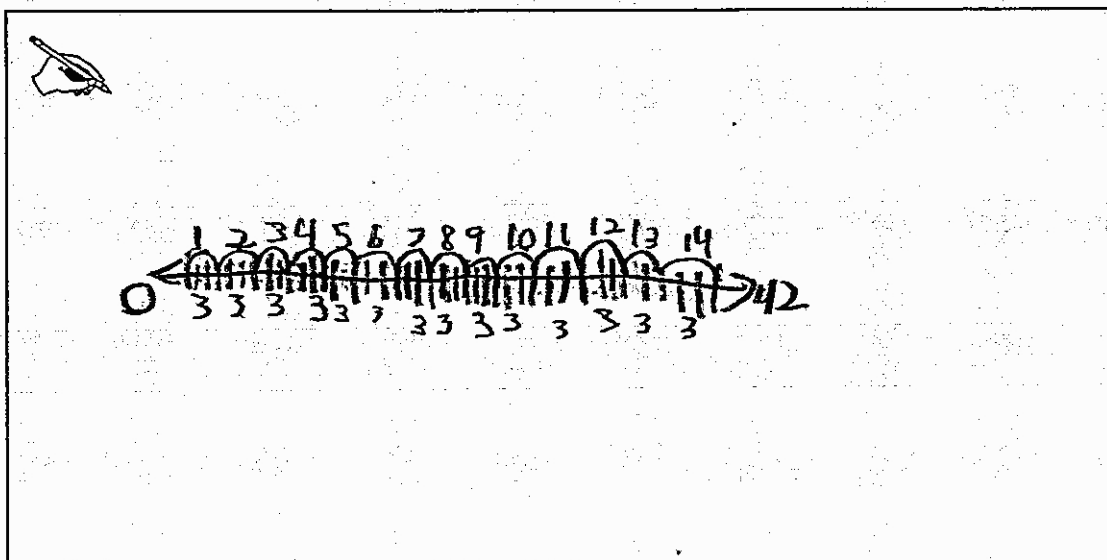 1 2 3 4 5 6 7 8 9 10 11 12 13 14
0 42
3 3 3 3 3 3 3 3 3 3 3 3 3 3